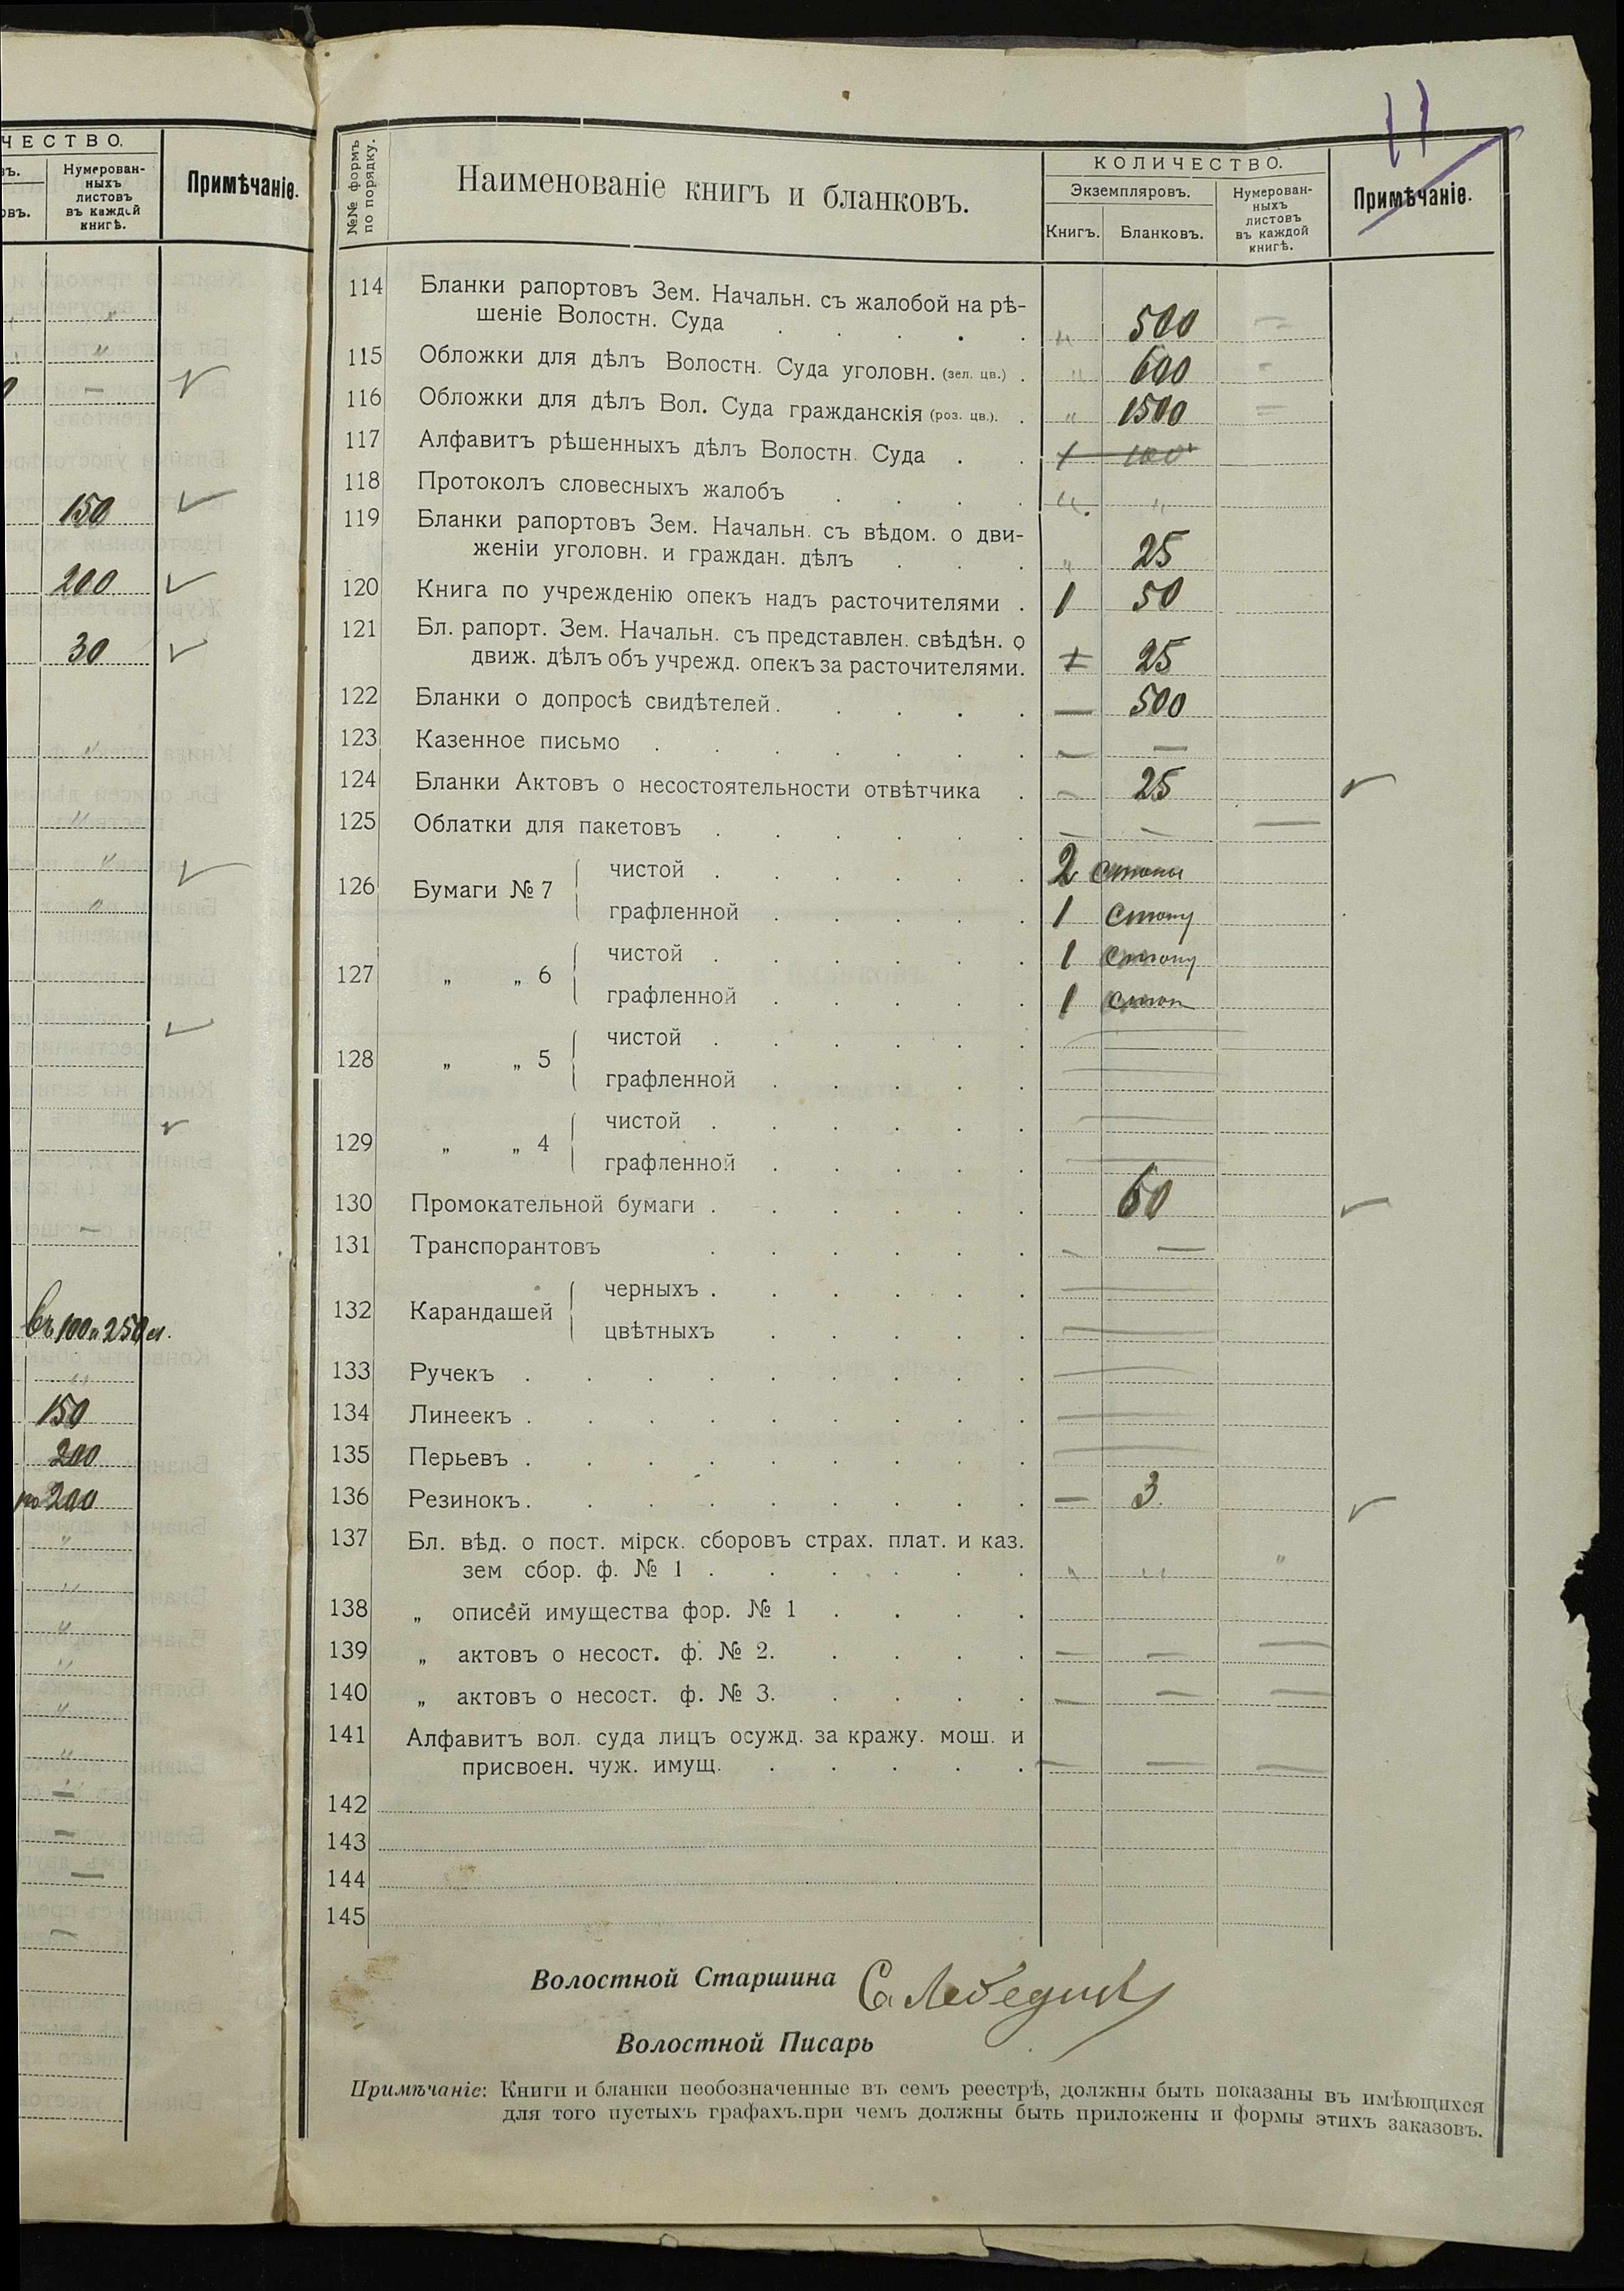 ЧЕСТВО.
въ.
овъ.
Нумерован-
ныхъ
листовъ
въ каждой
книгѣ.
Примѣчаніе.
"
"
0 —
150
200
30
"
"
"
"
—
въ 100 и 250 л.
"
150
200
по 200
"
"
"
"
"
"
—
—
—
—
11
№№ формъ
по порядку.
Наименованіе книгъ и бланковъ.
КОЛИЧЕСТВО.
Экземпляровъ.
Книгъ.
Бланковъ.
Нумерован-
ныхъ
листовъ
въ каждой
книгѣ.
Примѣчаніе.
114 Бланки рапортовъ Зем. Начальн. съ жалобой на рѣ-
шеніе Волостн. Суда . . . . . " 500 —
115 Обложки для дѣлъ Волостн. Суда уголовн. (зел. цв.) . " 600 —
116 Обложки для дѣлъ Вол. Суда гражданскія (роз. цв.). . " 1500 —
117 Алфавитъ рѣшенныхъ дѣлъ Волостн. Суда . . 1 100
118 Протоколъ словесныхъ жалобъ . . . . " "
119 Бланки рапортовъ Зем. Начальн. съ вѣдом. о дви-
женіи уголовн. и граждан. дѣлъ . . . " 25
120 Книга по учрежденію опекъ надъ расточителями . 1 50
121 Бл. рапорт. Зем. Начальн. съ представлен. свѣдѣн. о
движ. дѣлъ объ учрежд. опекъ за расточителями. 25
122 Бланки о допросѣ свидѣтелей. . . . . — 500
123 Казенное письмо . . . . . . . — —
124 Бланки Актовъ о несостоятельности отвѣтчика . — 25
125 Облатки для пакетовъ . . . . . . — — —
126 Бумаги № 7 чистой . . . . . . 2 стопы
графленной . . . . . 1 стопу
127 „ „ 6 чистой . . . . . . 1 стопу
графленной . . . . . 1 стоп
128 „ „ 5 чистой . . . . . . —
графленной . . . . . —
129 „ „ 4 чистой . . . . . . —
графленной . . . . . —
130 Промокательной бумаги . . . . . . 60
131 Транспорантовъ . . . . . . — —
132 Карандашей черныхъ . . . . . . —
цвѣтныхъ . . . . . —
133 Ручекъ . . . . . . . . . —
134 Линеекъ . . . . . . . . . —
135 Перьевъ . . . . . . . . . —
136 Резинокъ. . . . . . . . . — 3.
137 Бл. вѣд. о пост. мірск. сборовъ страх. плат. и каз.
зем сбор. ф. № 1 . . . . . . " " "
138 „ описей имущества фор. № 1 . . . .
139 „ актовъ о несост. ф. № 2. . . . . — — —
140 „ актовъ о несост. ф. № 3. . . . . — — —
141 Алфавитъ вол. суда лицъ осужд. за кражу. мош. и
присвоен. чуж. имущ. . . . . . — — —
142
143
144
145
Волостной Старшина
Волостной Писарь
Примѣчаніе: Книги и бланки необозначенные въ семъ реестрѣ, должны быть показаны въ имѣющихся
для того пустыхъ графахъ.при чемъ должны быть приложены и формы этихъ заказовъ.